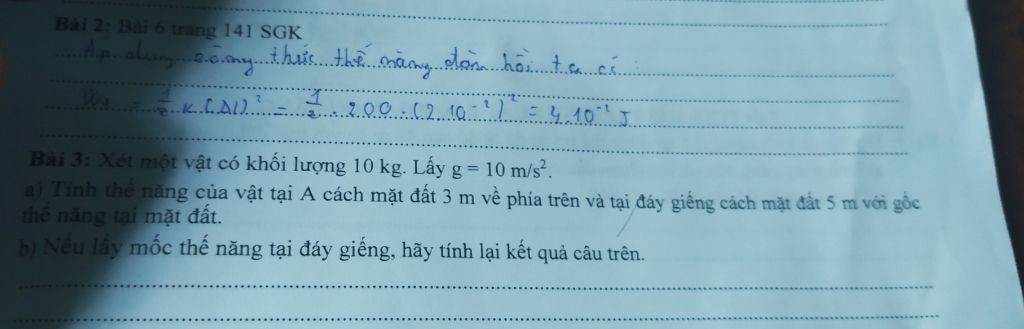 Bài 2: Bài 6 trang 141 SGK
Áp dụng công thức thế năng đàn hồi ta có :
Wt = 1/2 K.(Δl)² = 1/2 . 200 . (2.10⁻²)² = 4.10⁻² J
Bài 3: Xét một vật có khối lượng 10 kg. Lấy g = 10 m/s².
a) Tính thế năng của vật tại A cách mặt đất 3 m về phía trên và tại đáy giếng cách mặt đất 5 m với gốc
thế năng tại mặt đất.
b) Nếu lấy mốc thế năng tại đáy giếng, hãy tính lại kết quả câu trên.